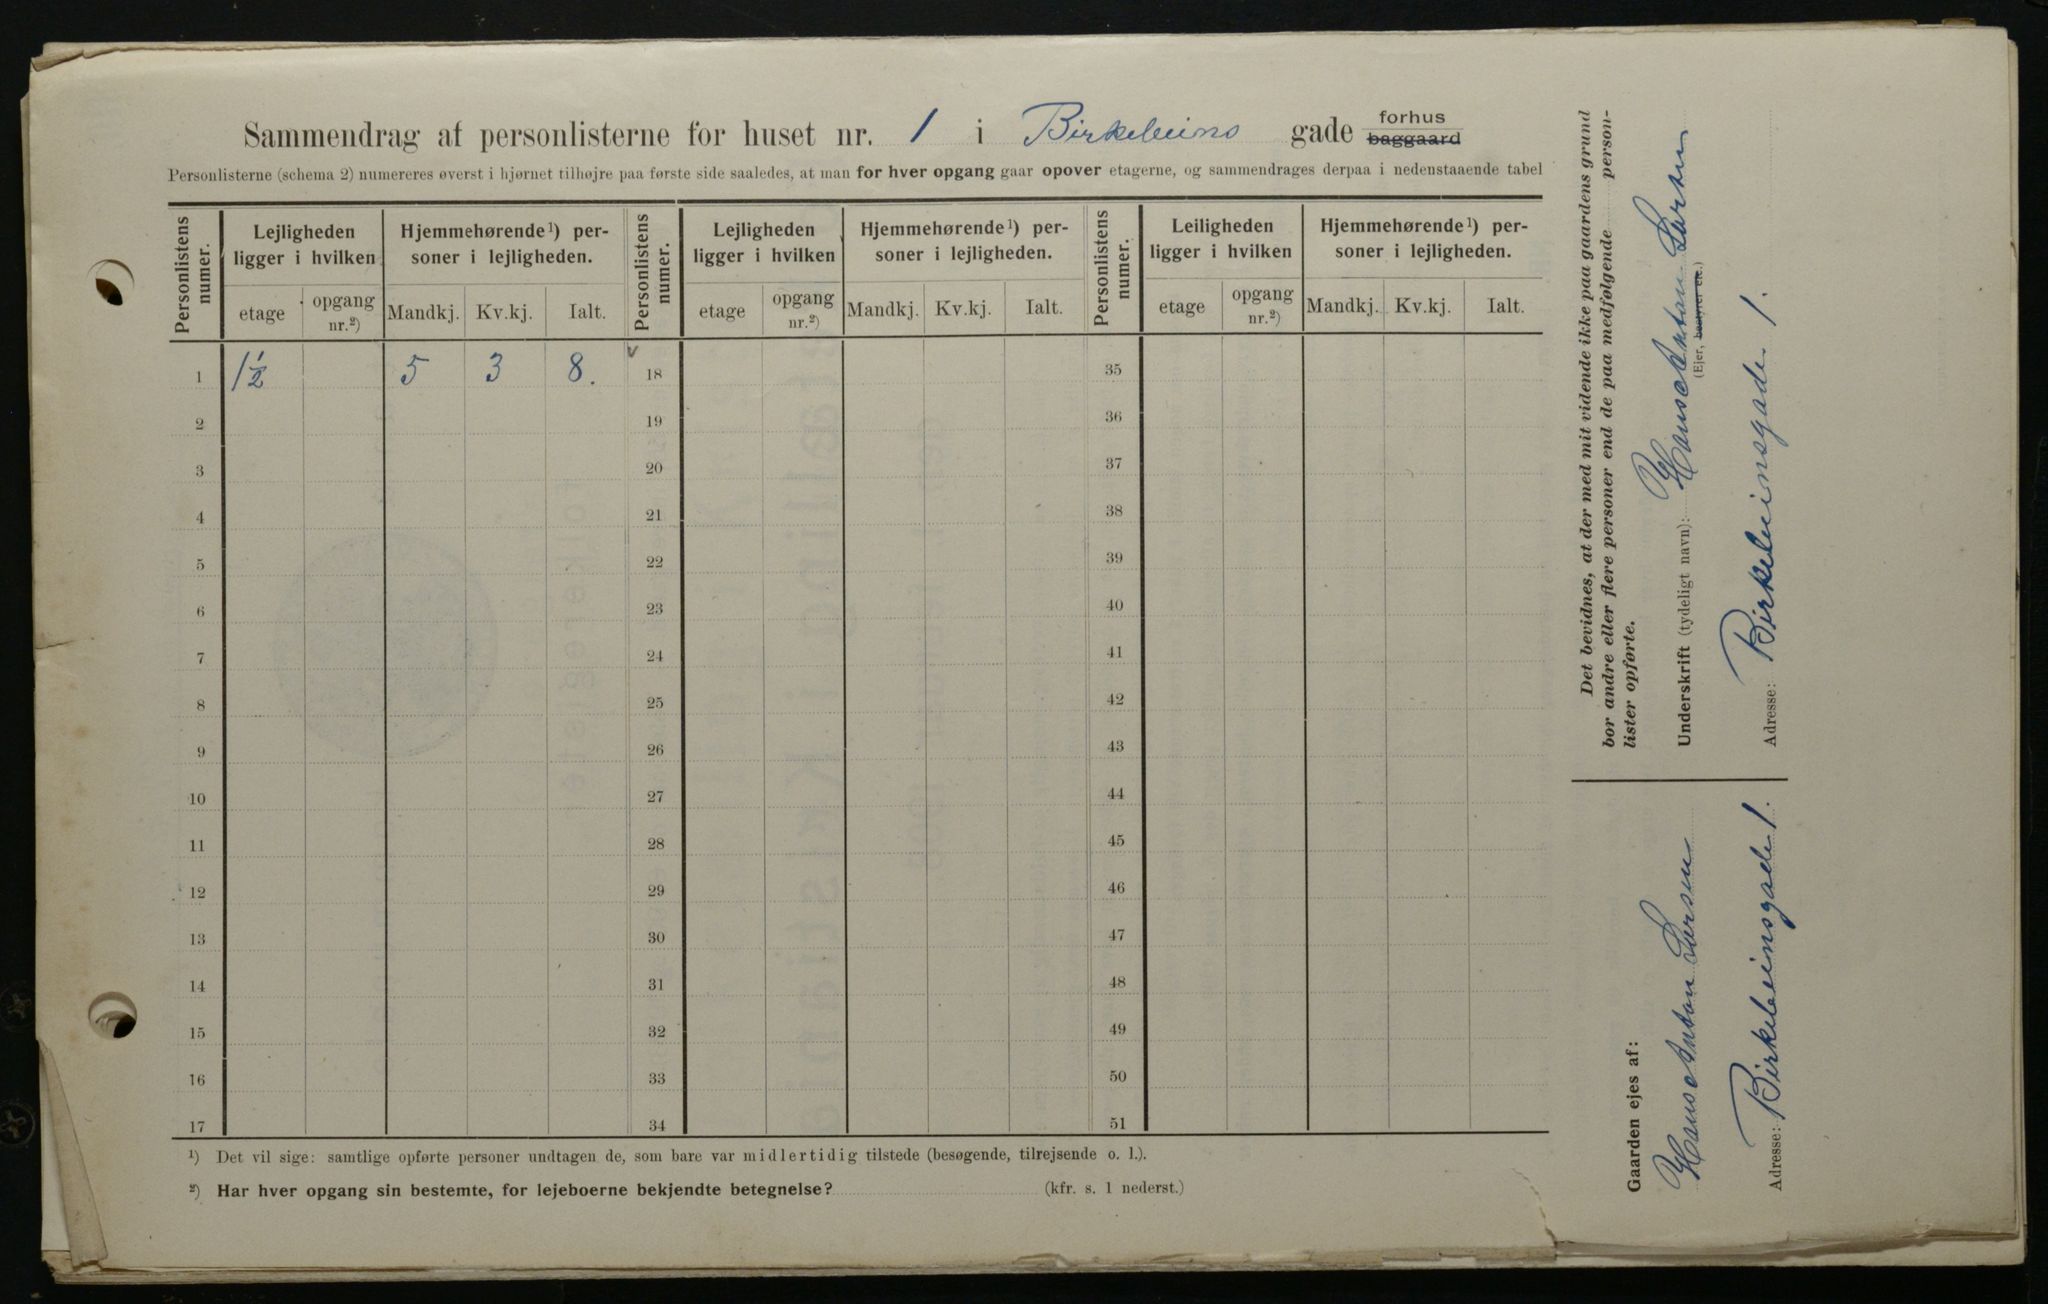 Sammendrag af personlisterne for huset nr. 1 i Birkebeins gade forhus
baggaard
Personlisterne (schema 2) numereres øverst i hjørnet tilhøjre paa første side saaledes, at man for hver opgang gaar opover etagerne, og sammendrages derpaa i nedenstaaende tabel
Personlistens numer.
Lejligheden ligger i hvilken
etage
opgang nr.²)
Hjemmehørende¹) personer i lejligheden.
Mandkj.
Kv.kj.
Ialt.
Personlistens numer.
Lejligheden ligger i hvilken
etage
opgang nr.²)
Hjemmehørende¹) personer i lejligheden.
Mandkj.
Kv.kj.
Ialt.
Personlistens numer.
Leiligheden ligger i hvilken
etage
opgang nr.²)
Hjemmehørende¹) personer i lejligheden.
Mandkj.
Kv.kj.
Ialt.
1 1½ 5 3 8. 18 35
2 19 36
3 20 37
4 21 38
5 22 39
6 23 40
7 24 41
8 25 42
9 26 43
10 27 44
11 28 45
12 29 46
13 30 47
14 31 48
15 32 49
16 33 50
17 34 51
¹) Det vil sige: samtlige opførte personer undtagen de, som bare var midlertidig tilstede (besøgende, tilrejsende o. l.).
²) Har hver opgang sin bestemte, for lejeboerne bekjendte betegnelse? (kfr. s. 1 nederst.)
Det bevidnes, at der med mit vidende ikke paa gaardens grund
bor andre eller flere personer end de paa medfølgende personlister opførte.
Underskrift (tydeligt navn): Hans Anton Larsen
(Ejer, bestyrer etc.)
Adresse: Birkebeinsgade 1.
Gaarden ejes af:
Hans Anton Larsen
Adresse: Birkebeinsgade 1.